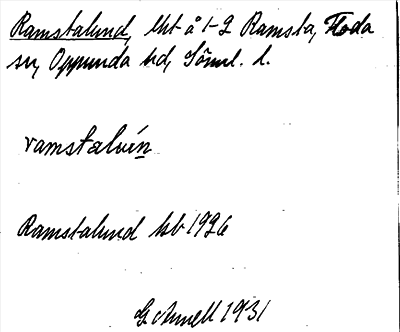 Ramstalund, lht å 1-2 Ramsta, Floda
sn, Oppunda hd, Söml. l.
ramstalún
Ramstalund hb 1926
G Ahnell 1931